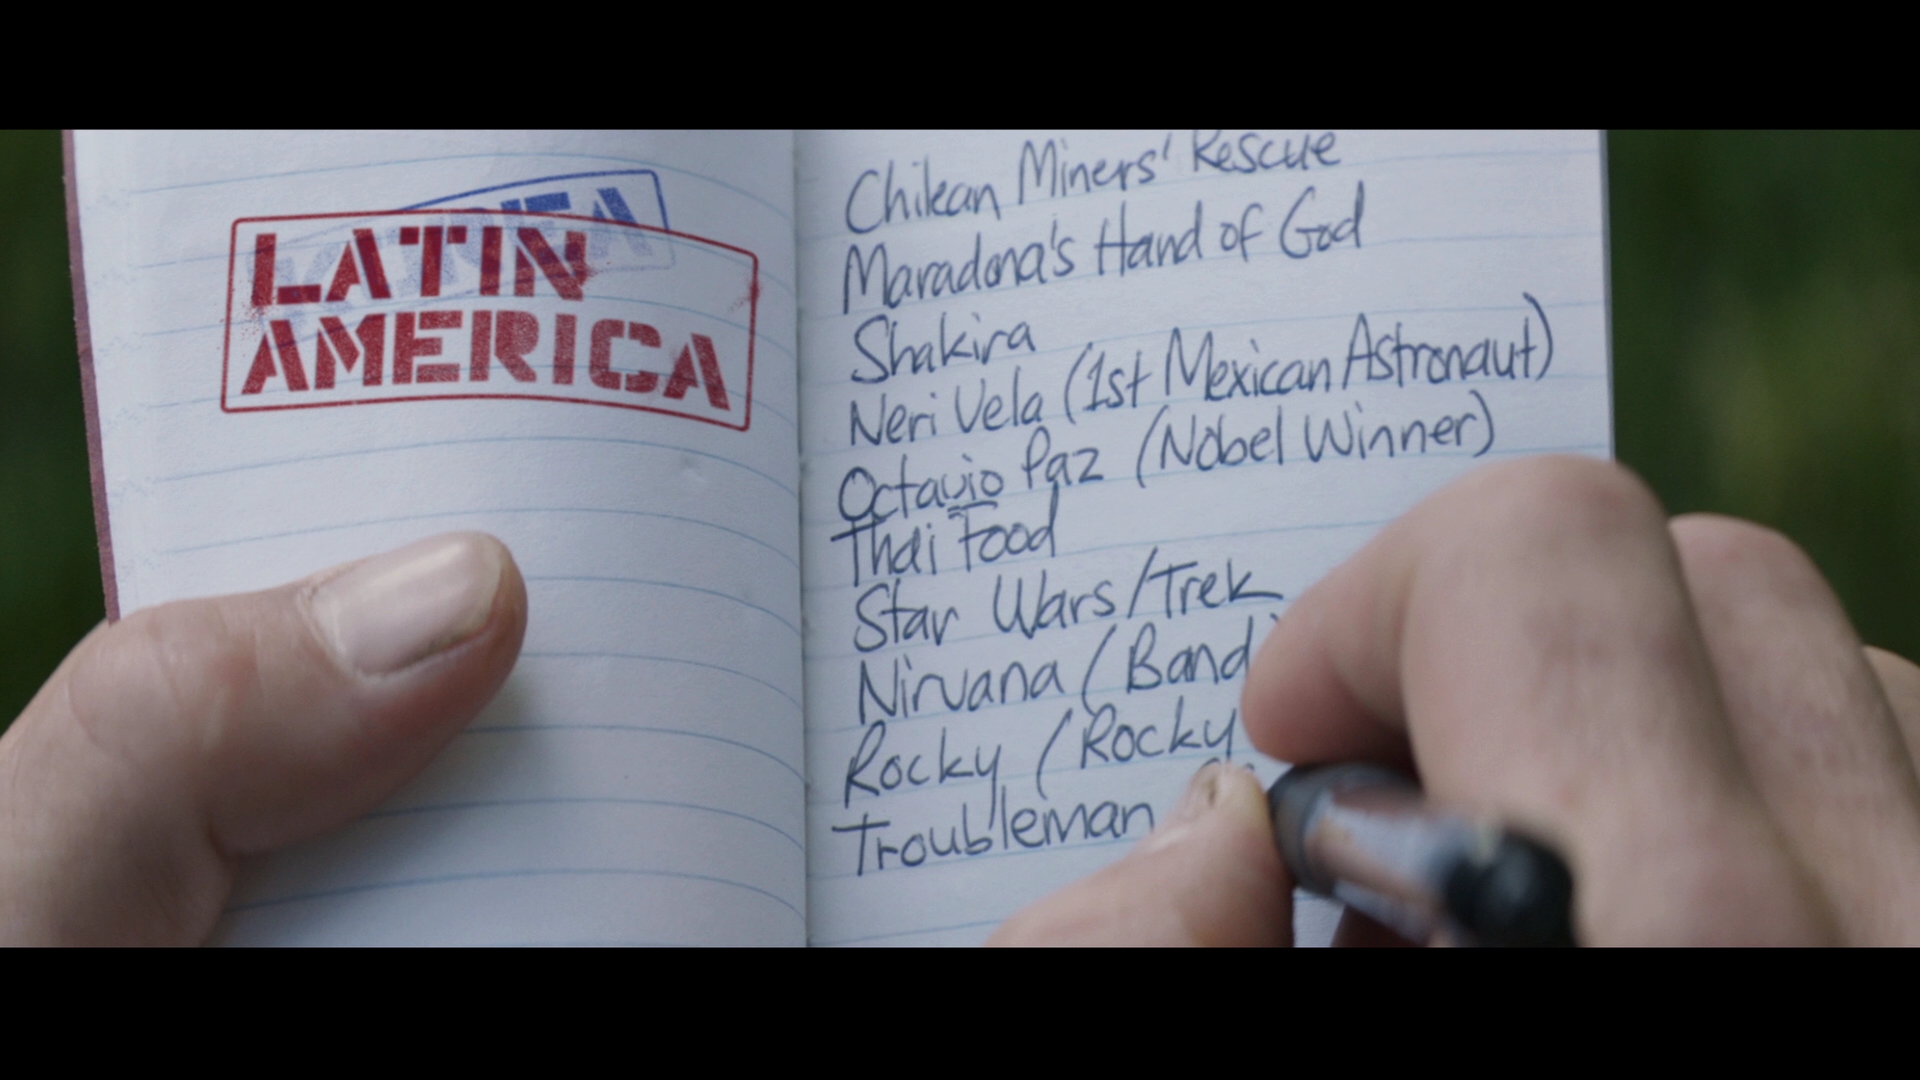 LATIN
AMERICA
Chilean Miners' Rescue
Maradona's Hand of God
Shakira
Neri Vela (1st Mexican Astronaut)
Octavio Paz (Nobel Winner)
Thai Food
Star Wars/Trek
Nirvana (Band)
Rocky (Rocky
Troubleman